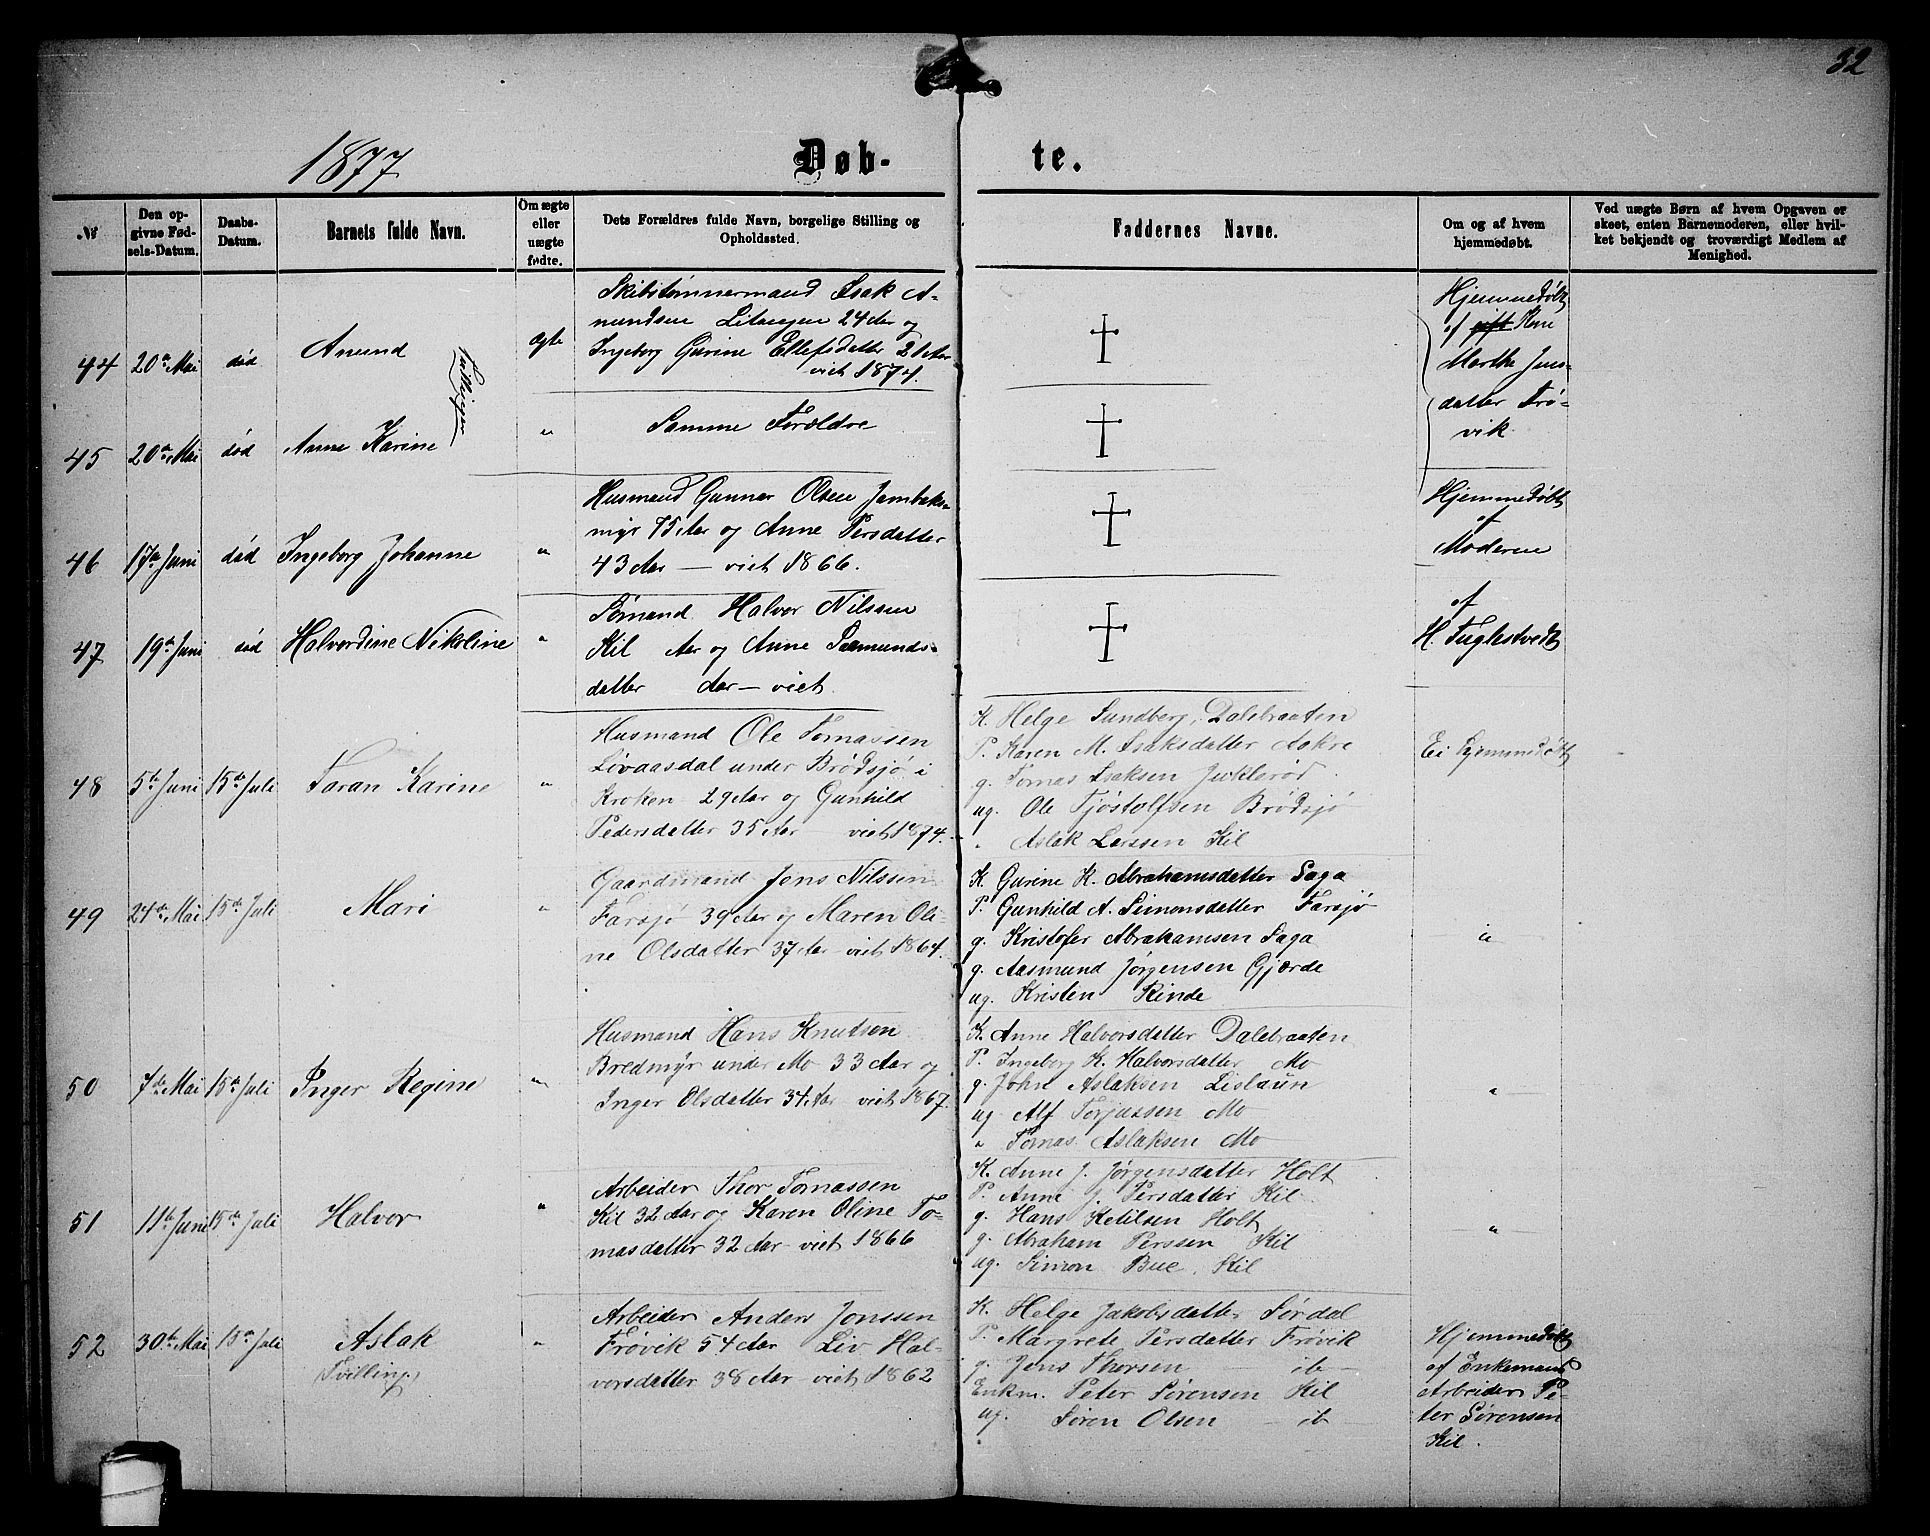 32
1877
Døb-
te.
№
Den op-
givne Fød-
sels-Datum.
Daabs-
Datum.
Barnets fulde Navn.
Om ægte
eller
uægte
fødte.
Dets Forældres fulde Navn, borgelige Stilling og
Opholdssted.
Faddernes Navne.
Om og af hvem
hjemmedøbt.
Ved uægte Børn af hvem Opgaven er
skeet, enten Barnemoderen, eller hvil-
ket bekjendt og troværdigt Medlem af
Menighed.
44 20de Mai død Anund ægte
Tvillinger
Skibstømmermand Isak A-
nundsen Litangen 24 Aar og
Ingeborg Gurine Ellefsdatter 21 Aar
viet 1874.
Hjemmedøbt
af gift Kone
Marthe Jens-
datter Frø-
vik
45 20de Mai død Anne Karine "
Samme Forældre
46 17de Juni død Ingeborg Johanne "
Husmand Gunnar Olsen Jambaks-
myr 75 Aar og Anne Persdatter
43 Aar — viet 1866.
Hjemmedøbt
af
Moderen
47 19de Juni død Halvordine Nikoline "
Sømand Halvor Nilssen
Kil Aar og Anne Saamunds-
datter Aar — viet.
af
H. Fuglestvedt
48 5te Juni 15de Juli Taran Karine "
Husmand Ole Tomassen
Lövaasdal under Brødsjø i
Kroken 29 Aar og Gunhild
Pedersdatter 35 Aar — viet 1874.
K. Helge Sundberg, Dalebraaten
P. Karen M. Isaksdatter Aakre
g. Tomas Isaksen Juklerød
ug. Ole Tjøstolfsen Brødsjø
" Aslak Larssen Kil
Ei hjemmedøbt
49 24de Mai 15de Juli Mari "
Gaardmand Jens Nilssen
Farsjø 39 Aar og Maren Oli-
ne Olsdatter 37 Aar viet 1864.
K. Gurine K. Abrahamsdatter Saga
P. Gunhild A. Simonsdatter Farsjø
g. Kristofer Abrahamsen Saga
g. Aasmund Jørgensen Gjærde
ug. Kristen Rinde
"
50 7de Mai 15de Juli Inger Regine "
Husmand Hans Knutsen
Bredmyr under Mo 33 Aar og
Inger Olsdatter 34 Aar viet 1867.
K. Anne Halvorsdatter Dalebraaten
P. Ingeborg K. Halvorsdatter Mo
g. John Aslaksen Lislaun
ug Alf Torjussen Mo
" Tomas Aslaksen Mo
"
51 11te Juni 15de Juli Halvor "
Arbeider Thor Tomassen
Kil 32 Aar og Karen Oline To-
masdatter 32 Aar viet 1866
K. Anne J. Jørgensdatter Holt
P. Anne J. Persdatter Kil
g. Hans Ketilsen Holt
g. Abraham Perssen Kil
ug. Simon Bue, Kil
"
52 30te Mai 15de Juli Aslak "
Tvilling
Arbeider Anders Jonssen
Frøvik 54 Aar Liv Hal-
vorsdatter 38 Aar viet 1862
K. Helge Jakobsdatter Sørdal
P. Margrete Persdatter Frøvik
g. Jens Thorsen ib
Enkm. Peter Sørensen Kil
ug. Søren Olsen — ib
Hjemmedøbt
af Enkemand
Arbeider Pe-
ter Sørensen
Kil.